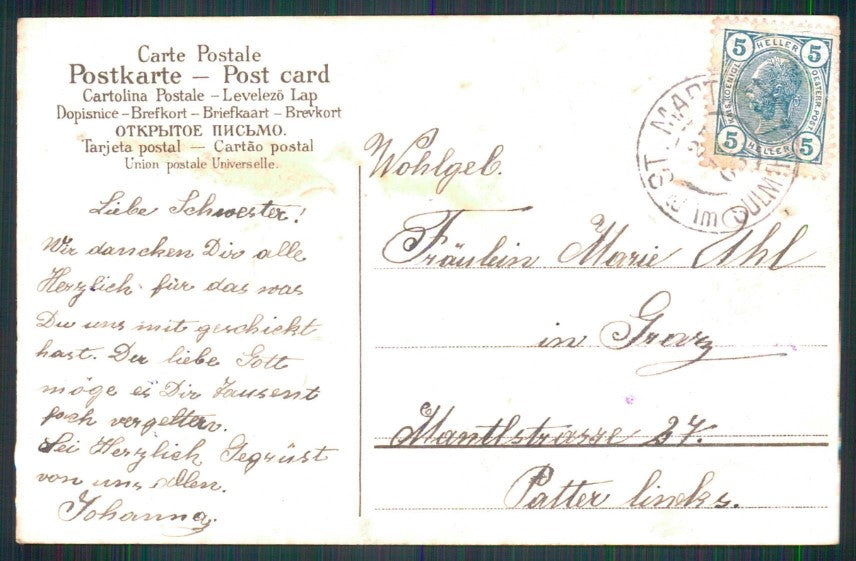 Carte Postale
Postkarte — Post card
Cartolina Postale – Levelező Lap
Dopisnice – Brefkort – Briefkaart – Brevkort
ОТКРЫТОЕ ПИСЬМО.
Tarjeta postal — Cartão postal
Union postale Universelle.
Liebe Schwester!
Wir dancken Dir alle
Herzlich für das was
Du uns mit geschickt
hast. Der liebe Gott
möge es Dir Tausent
fach vergelten.
Sei Herzlich Gegrüst
von uns allen.
Johanna.
5 HELLER 5
KAIS. KÖNIGL. OESTERR. POST
5 HELLER 5
ST. MARTIN
im SULMTHAL
Wohlgeb.
Fräulein Marie Uhl
in Graz
Mantlstrasse 27.
Patter lincks.